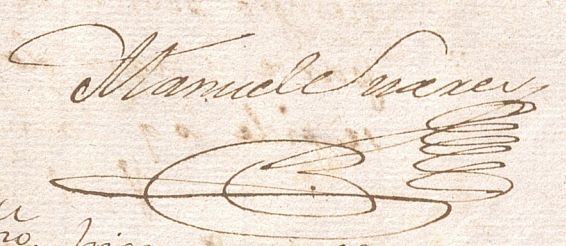 Manuel Suarez